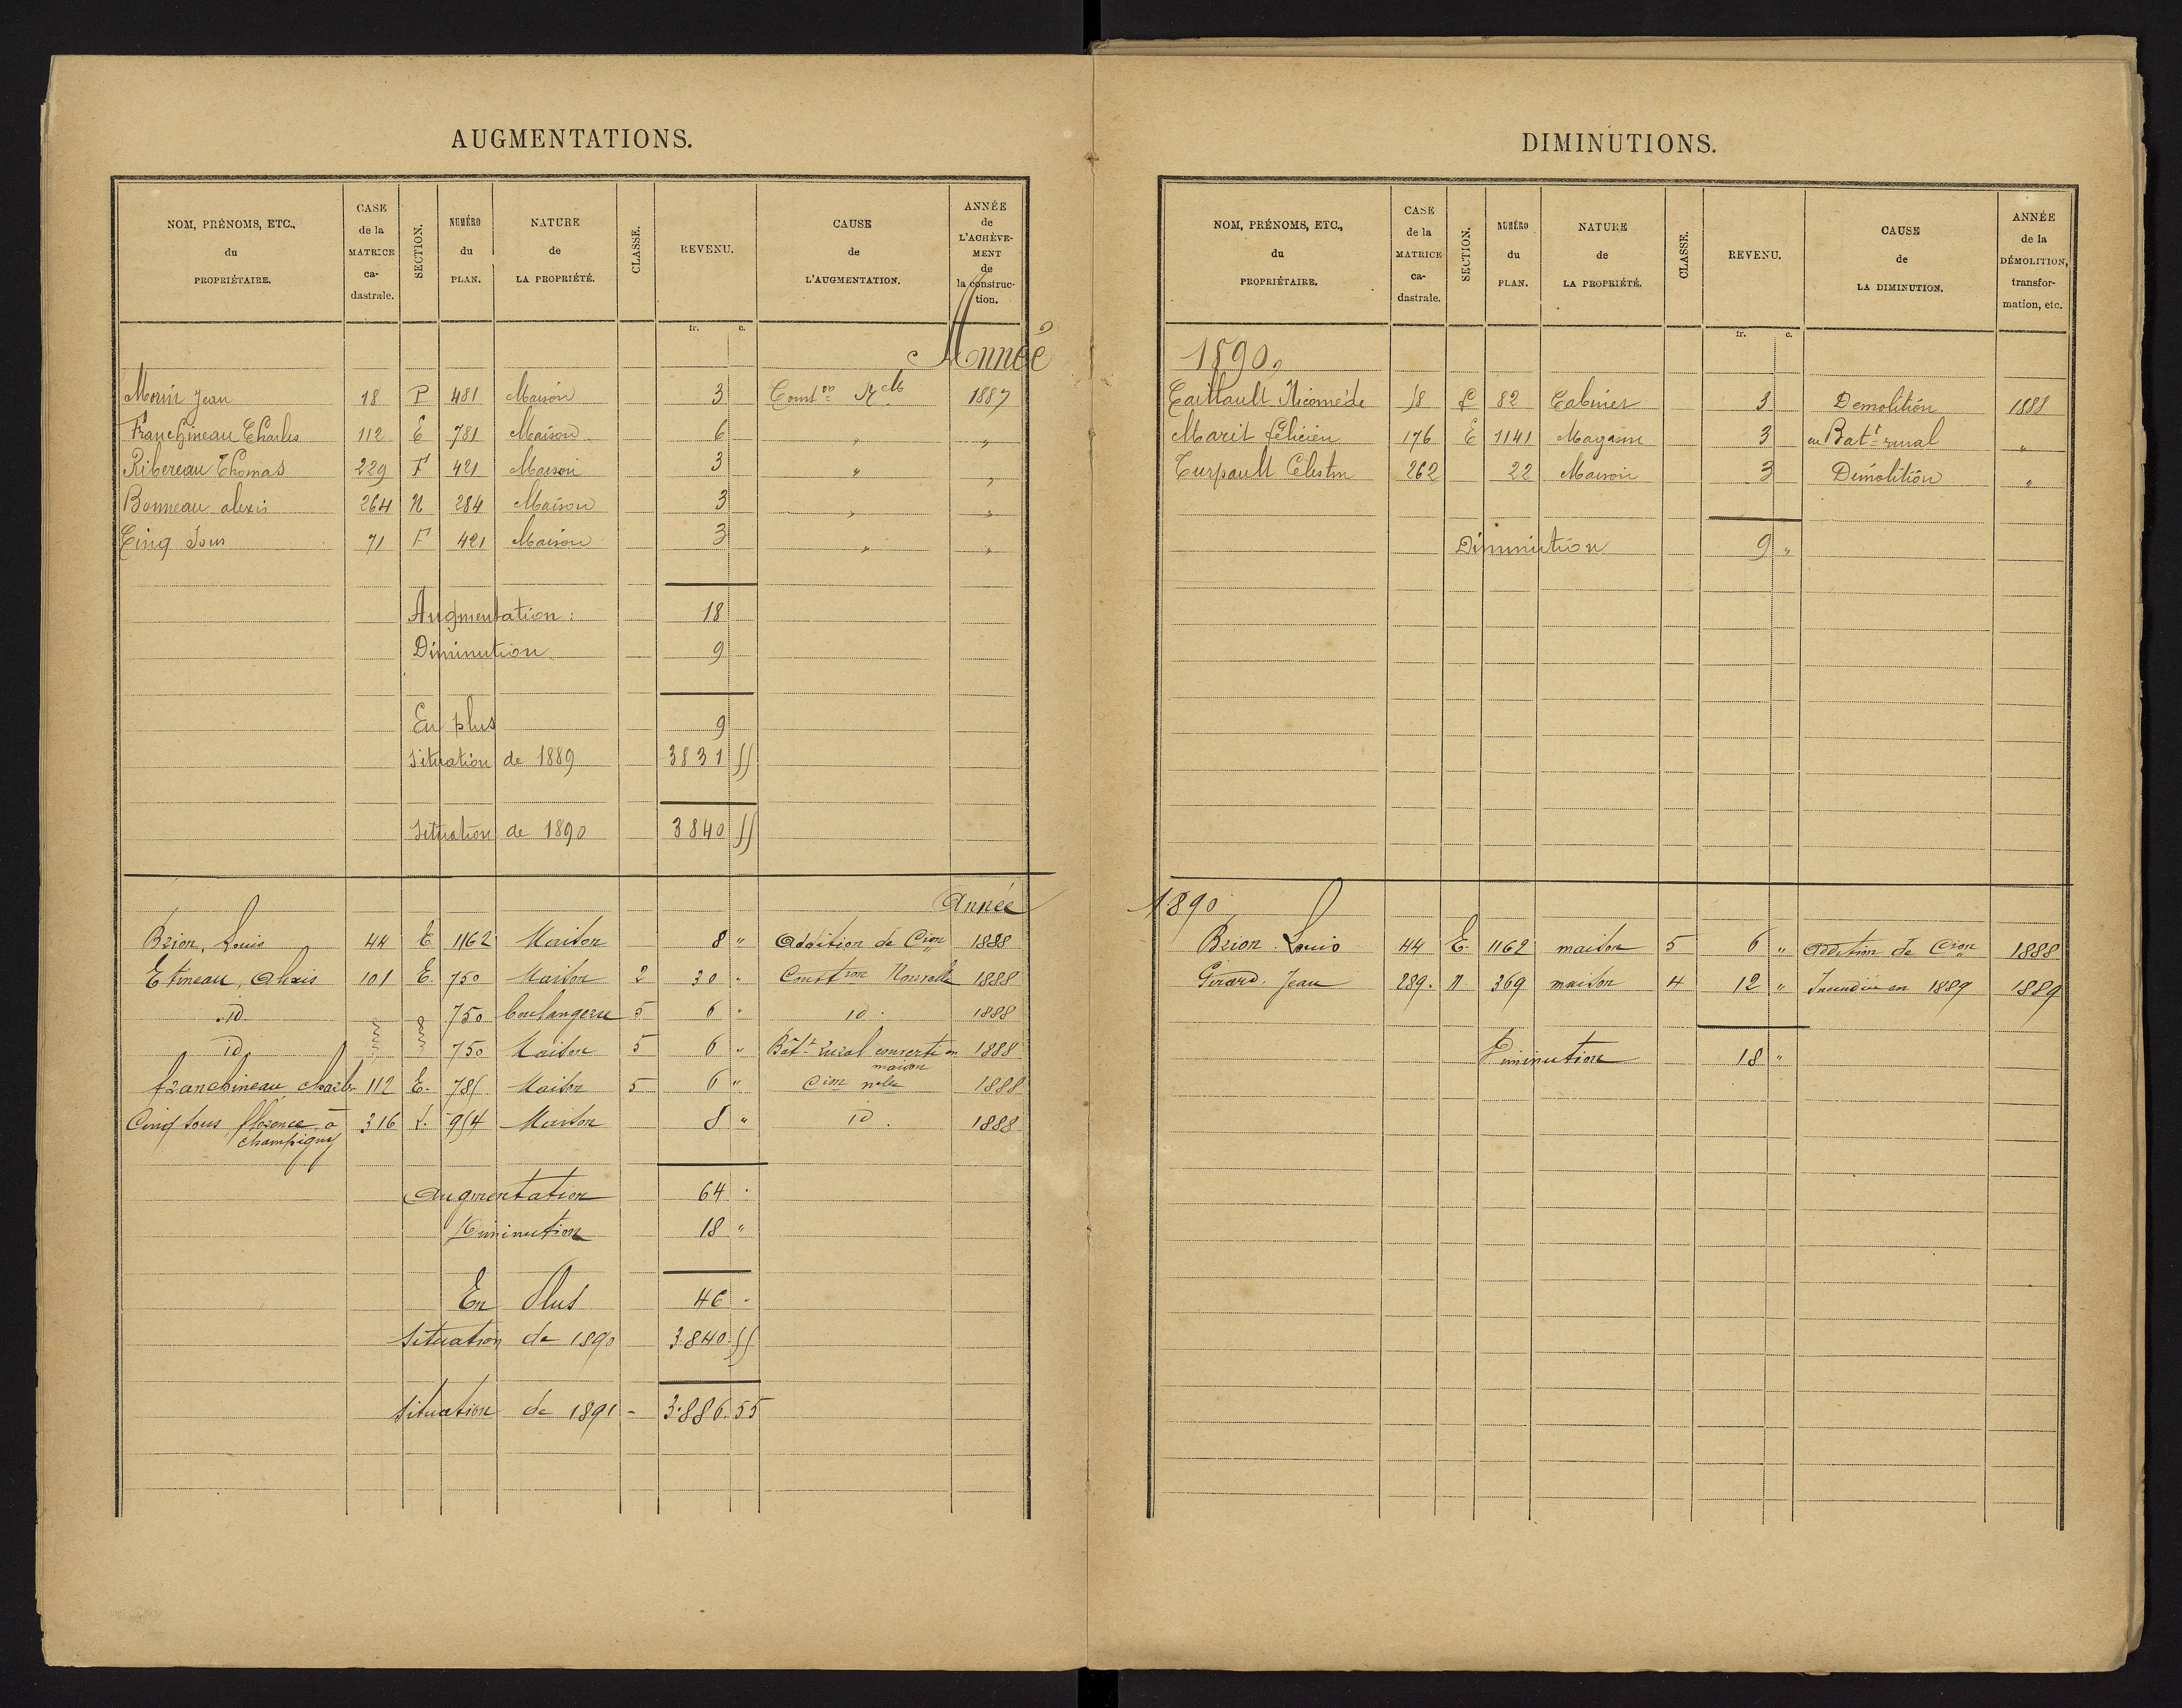 AUGMENTATIONS.
NOM, PRÉNOMS, ETC., du PROPRIÉTAIRE.
CASE de la MATRICE ca- dastrale.
SECTION.
NUMÉRO du PLAN.
NATURE de LA PROPRIÉTÉ.
CLASSE.
REVENU.
CAUSE de L'AUGMENTATION.
ANNÉE de L'ACHÈVE- MENT de la construc- tion.
fr. c.
Année
Morin Jean 18 P 481 Maison 3 Const on Nlle 1887
Franchineau Charles 112 E 781 Maison 6 " "
Ribereau Thomas 229 F 421 Maison 3 " "
Bonneau alexis 264 N 284 Maison 3 " "
Cinq Sous 71 F 421 Maison 3 " "
Augmentation : 18
Diminution 9
En plus 9
Situation de 1889 3831 55
Situation de 1890 3840 55
Année
Brion, Louis 44 E 1162 Maison 8 " Addition de Cion 1888
Etineau, Alexis 101 E. 750 Maison 2 30 " Constron Nouvelle 1888
id 750 boulangerie 5 6 " id. 1888
id 750 Maison 5 6 " Bât.t rural converti en maison 1888
franchineau, charles 112 E. 781 Maison 5 6 " Cion nelle 1888
Cinq sous florence à champigny 316 954 Maison 8 " id. 1888
Augmentation 64 "
Diminution 18 "
En Plus 46 "
Situation de 1890 3.840.55
Situation de 1891 - 3.886.55
DIMINUTIONS.
NOM, PRÉNOMS, ETC., du PROPRIÉTAIRE.
CASE de la MATRICE ca- dastrale.
SECTION.
NUMÉRO du PLAN.
NATURE de LA PROPRIÉTÉ.
CLASSE.
REVENU.
CAUSE de LA DIMINUTION.
ANNÉE de la DÉMOLITION, transfor- mation, etc.
fr. c.
1890.
Caillault Nicomède 18 82 Cabinet 3 Demolition 1888
Marit félicien 176 E 1141 Magasin 3 en Bat.t rural "
Turpault Célestin 262 22 Maison 3 Démolition "
Diminution 9 "
1890
Brion. Louis 44 E. 1162 maison 5 6 " addition de Cion 1888
Girard. Jean 289. N. 369 maison 4 12 " Incendiée en 1889 1889
Diminution 18 "